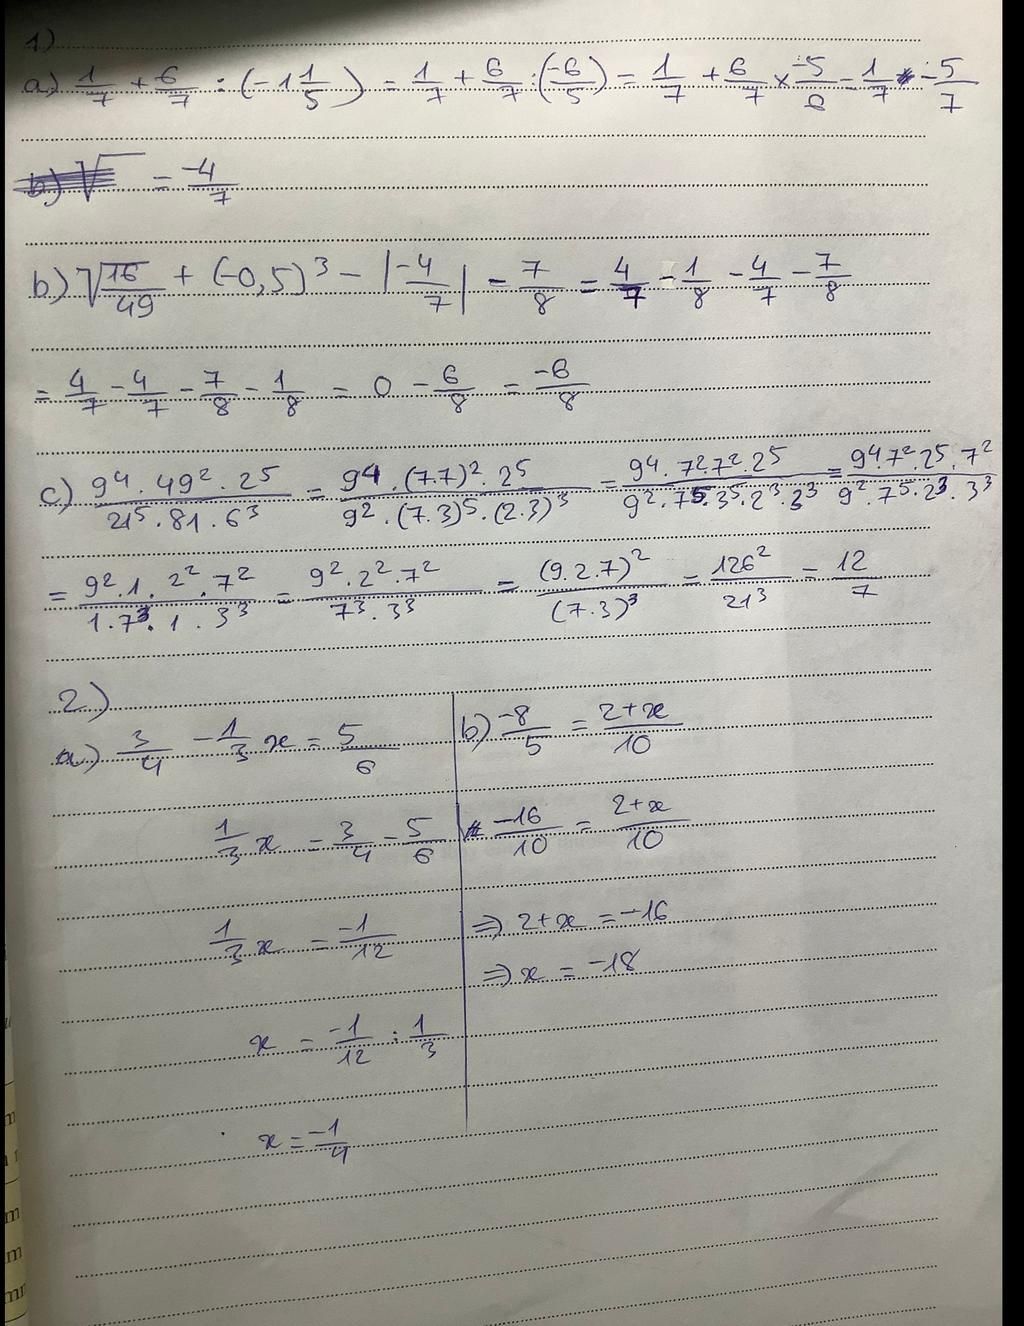 1)
a) 1/7 + 6/7 : (-1 1/5) = 1/7 + 6/7 : (-6/5) = 1/7 + 6/7 × -5/6 = 1/7 + -5/7
= -4/7
b) √16/49 + (-0,5)³ - |-4/7| - 7/8 = 4/7 - 1/8 - 4/7 - 7/8
= 4/7 - 4/7 - 7/8 - 1/8 = 0 - 6/8 = -6/8
c) 9⁴ . 49² . 2⁵ / 21⁵ . 81 . 6³ = 9⁴ . (7.7)² . 2⁵ / 9² . (7.3)⁵ . (2.3)³ = 9⁴ . 7².7² . 2⁵ / 9² . 7⁵ . 3⁵ . 2³ . 3³ = 9⁴.7².2⁵.7² / 9² . 7⁵ . 2³ . 3³
= 9² . 1 . 2² . 7² / 1 . 7³ . 1 . 3³ = 9² . 2² . 7² / 7³ . 3³ = (9.2.7)² / (7.3)³ = 126² / 21³ = 12/7
2)
a) 3/4 - 1/3 x = 5/6
1/3 x = 3/4 - 5/6
1/3 x = -1/12
x = -1/12 : 1/3
x = -1/4
b) -8/5 = 2+x/10
-16/10 = 2+x/10
⇒ 2+x = -16
⇒ x = -18